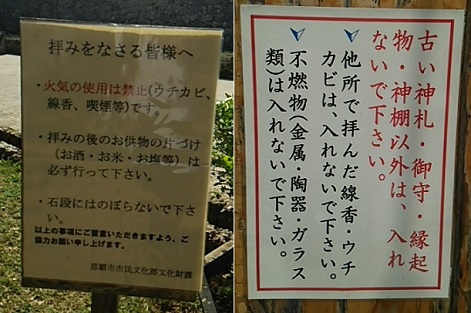 拝みをなさる皆様へ
・火気の使用は禁止(ウチカビ、
線香、喫煙等)です。
・拝みの後のお供物の片づけ
(お酒・お米・お塩等)は
必ず行って下さい。
・石段にはのぼらないで下さ
い。
以上の事項にご留意いただきますよう、ご
協力お願い申し上げます。
那覇市市民文化部文化財課
古い神札・御守・縁起
物・神棚以外は、入れ
ないで下さい。
他所で拝んだ線香・ウチ
カビは、入れないで下さい。
不燃物(金属・陶器・ガラス
類)は入れないで下さい。